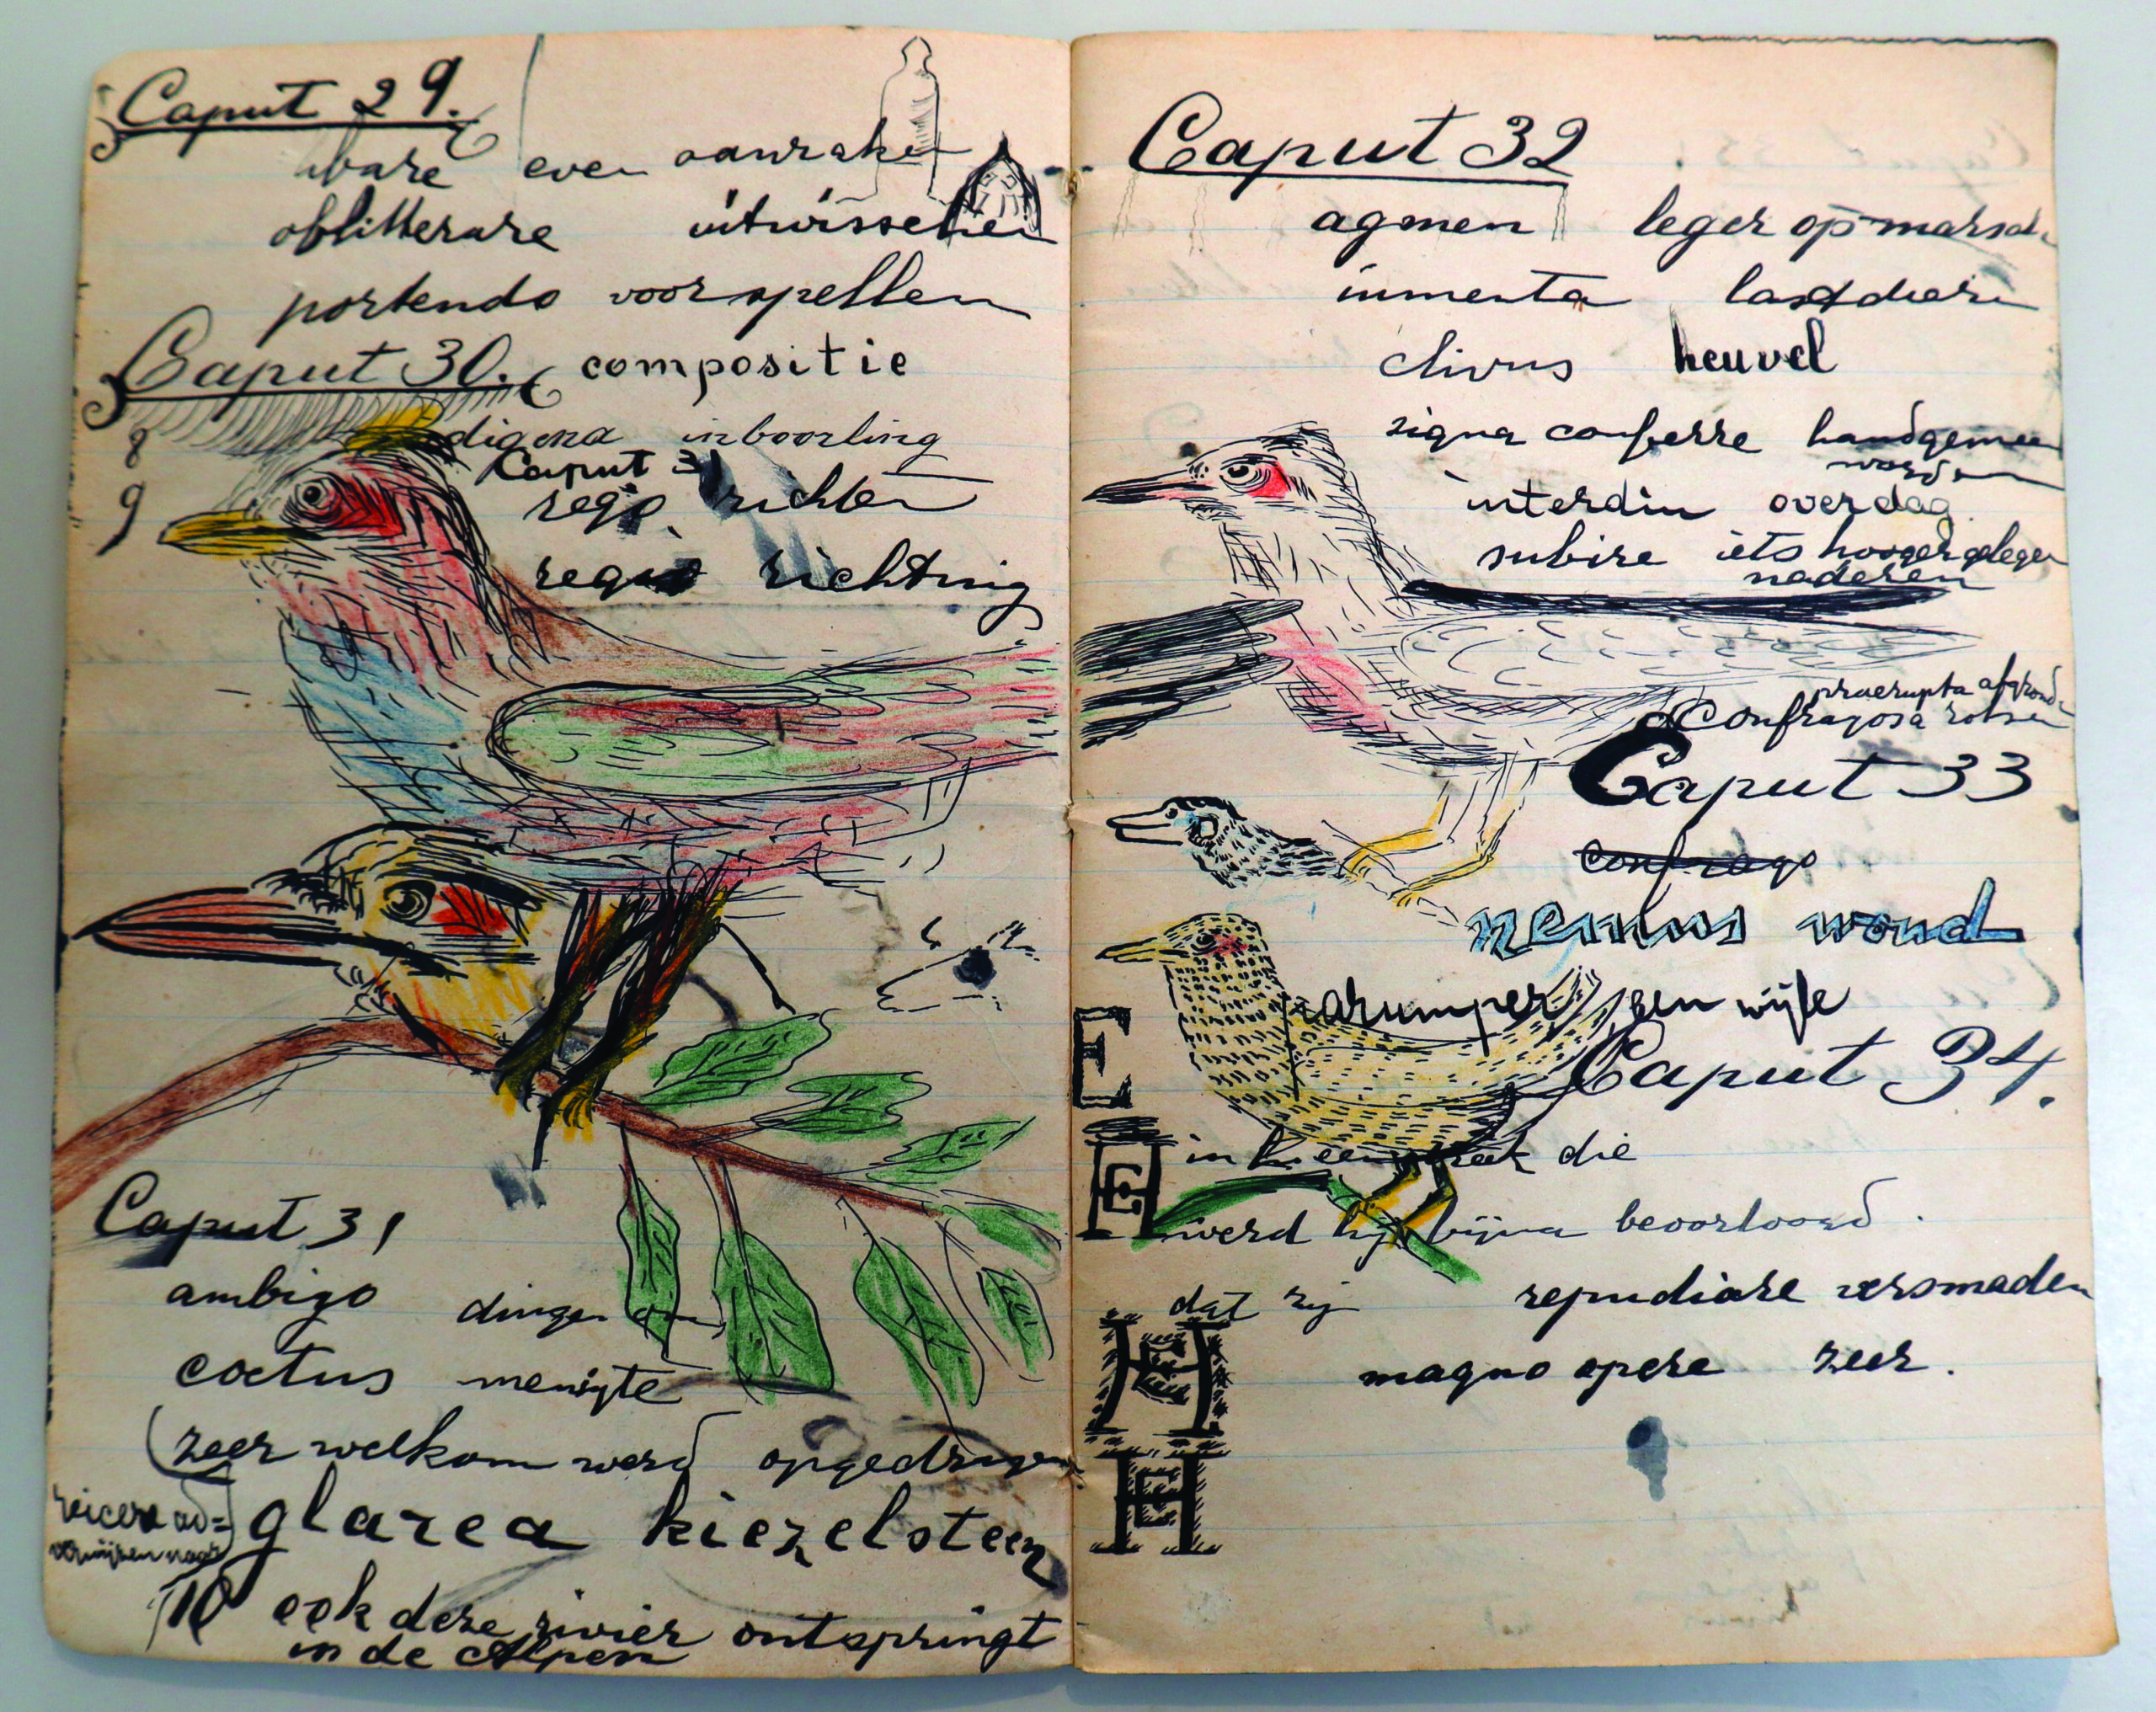 Caput 29.
even aanraken
oblitterare uitwisschen
portendo voorspellen
Caput 30. compositie
8 digena inboorling
Caput 31
9 rego richten
regio richting
Caput 31
ambigo dingen om
coetus menigte
(zeer welkom werd opgedragen
reicere ad =
verwijzen naar
glarea kiezelsteen
10 ook deze rivier ontspringt
in de Alpen
Caput 32
agmen leger op marsch
iumenta lastdieren
clivus heuvel
signa conferre handgemeen
worden
interdiu overdag
subire iets hooger gelegen
naderen
praerupta afgrond
Confragosa rotsen
Caput 33
confrago
nemus woud
Caput 34.
die
werd hij bijna beoorloogd.
dat zij repudiare versmaden
magno opere zeer.
E
E
H
H